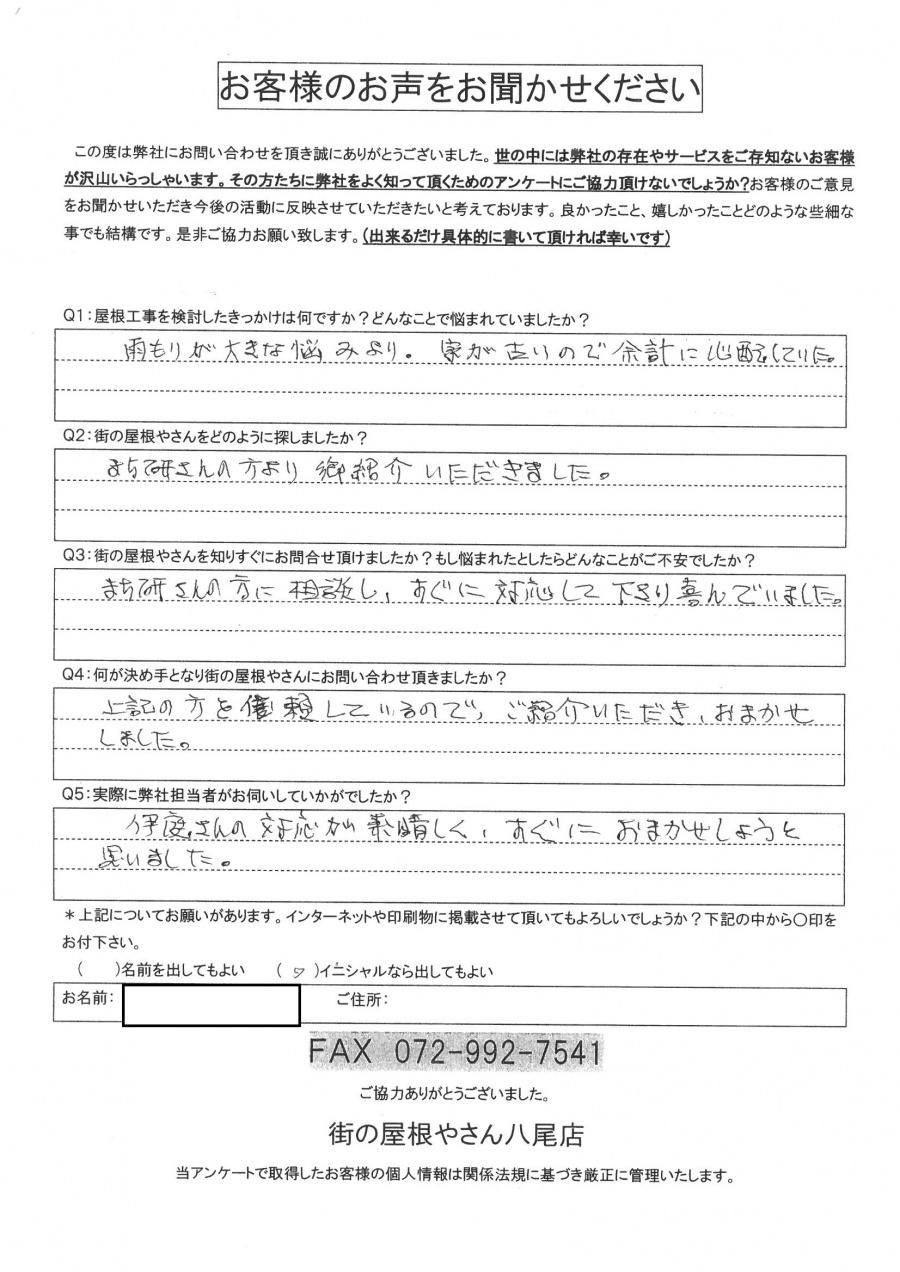 お客様のお声をお聞かせください
この度は弊社にお問い合わせを頂き誠にありがとうございました。世の中には弊社の存在やサービスをご存知ないお客様
が沢山いらっしゃいます。その方たちに弊社をよく知って頂くためのアンケートにご協力頂けないでしょうか?お客様のご意見
をお聞かせいただき今後の活動に反映させていただきたいと考えております。良かったこと、嬉しかったことどのような些細な
事でも結構です。是非ご協力お願い致します。(出来るだけ具体的に書いて頂ければ幸いです)
Q1:屋根工事を検討したきっかけは何ですか?どんなことで悩まれていましたか?
雨もりが大きな悩みより。家が古いので余計に心配していた。
Q2:街の屋根やさんをどのように探しましたか?
まち研さんの方より御紹介いただきました。
Q3:街の屋根やさんを知りすぐにお問合せ頂けましたか?もし悩まれたとしたらどんなことがご不安でしたか?
まち研さんの方に相談し、すぐに対応して下さり喜んでいました。
Q4:何が決め手となり街の屋根やさんにお問い合わせ頂きましたか?
上記の方を信頼しているので、ご紹介いただき、おまかせ
しました。
Q5:実際に弊社担当者がお伺いしていかがでしたか?
伊庭さんの対応が素晴しく、すぐにおまかせしょうと
思いました。
*上記についてお願いがあります。インターネットや印刷物に掲載させて頂いてもよろしいでしょうか?下記の中から〇印を
お付下さい。
( )名前を出してもよい ( )イニシャルなら出してもよい
お名前: ご住所:
FAX 072-992-7541
ご協力ありがとうございました。
街の屋根やさん八尾店
当アンケートで取得したお客様の個人情報は関係法規に基づき厳正に管理いたします。